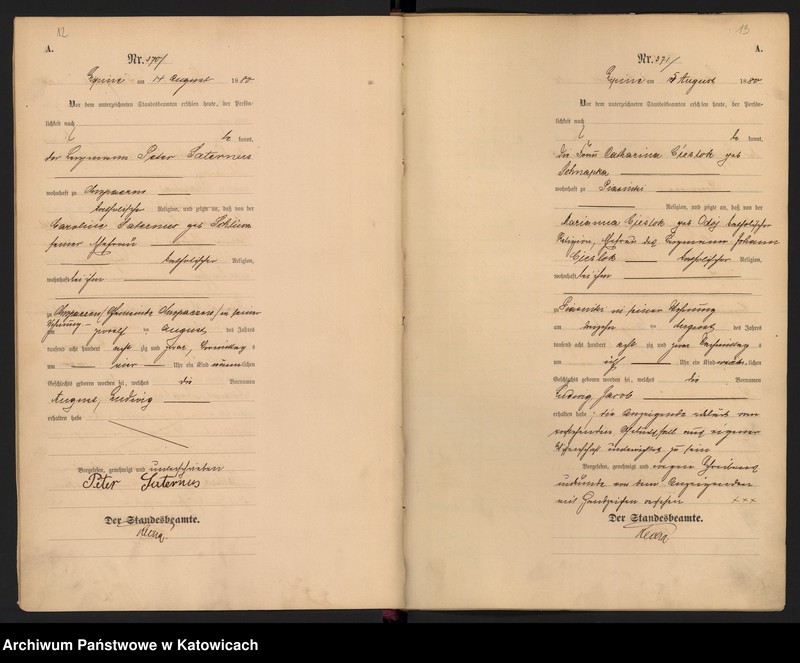 12
A.
Nr. 370/
am 14 August 1880
Vor dem unterzeichneten Standesbeamten erschien heute, der Persön-
lichkeit nach
be kannt,
der Bergmann Peter Saternus
wohnhaft zu
katholischer Religion, und zeigte an, daß von der
Karoline Saternus geb
seiner Ehefrau
katholischer Religion,
wohnhaft bei ihm
zu in seiner
Wohnung
am zwölf ten August des Jahres
tausend acht hundert acht zig und zwar Vormittag s
um vier Uhr ein Kind männlichen
Geschlechts geboren worden sei, welches die Vornamen
August, Ludwig
erhalten habe
Vorgelesen, genehmigt und unterschrieben
Peter Saternus
Der Standesbeamte.
13
A.
Nr. 371/
am August 1880
Vor dem unterzeichneten Standesbeamten erschien heute, der Persön-
lichkeit nach
be kannt,
die Frau Catharina Cieslok geb
Schnapka
wohnhaft zu
Religion, und zeigte an, daß von der
Marianna Cieslok geb katholischer
Religion, Ehefrau des Bergmann Johann
Cieslok katholischer Religion,
wohnhaft bei ihm
zu in seiner Wohnung
am ten August des Jahres
tausend acht hundert acht zig und zwar Nachmittag s
um Uhr ein Kind männlichen
Geschlechts geboren worden sei, welches die Vornamen
Ludwig Jacob
erhalten habe; die Anzeigende erklärt von
vorstehenden Geburtsfall aus eigener
Wissenschaft unterrichtet zu sein
Vorgelesen, genehmigt und wegen Schreibens
unkunde von dem Anzeigenden
mit Handzeichen versehen xxx
Der Standesbeamte.
Archiwum Państwowe w Katowicach